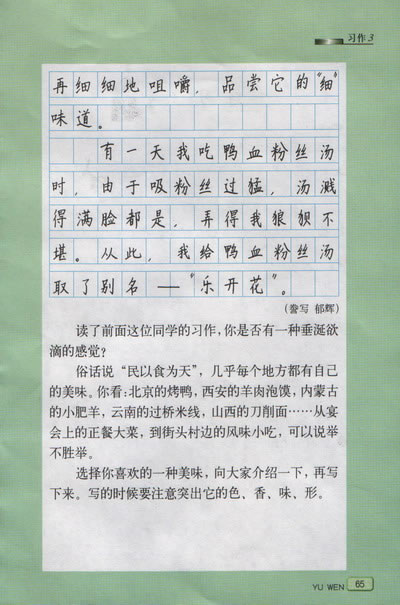 习作 3
再细细地咀嚼，品尝它的“细”
味道。
有一天我吃鸭血粉丝汤
时，由于吸粉丝过猛，汤溅
得满脸都是，弄得我狼狈不
堪。从此，我给鸭血粉丝汤
取了别名——“乐开花”。
(誊写 郁辉)
读了前面这位同学的习作，你是否有一种垂涎欲
滴的感觉？
俗话说“民以食为天”，几乎每个地方都有自己
的美味。你看：北京的烤鸭，西安的羊肉泡馍，内蒙古
的小肥羊，云南的过桥米线，山西的刀削面……从宴
会上的正餐大菜，到街头村边的风味小吃，可以说举
不胜举。
选择你喜欢的一种美味，向大家介绍一下，再写
下来。写的时候要注意突出它的色、香、味、形。
YU WEN 65